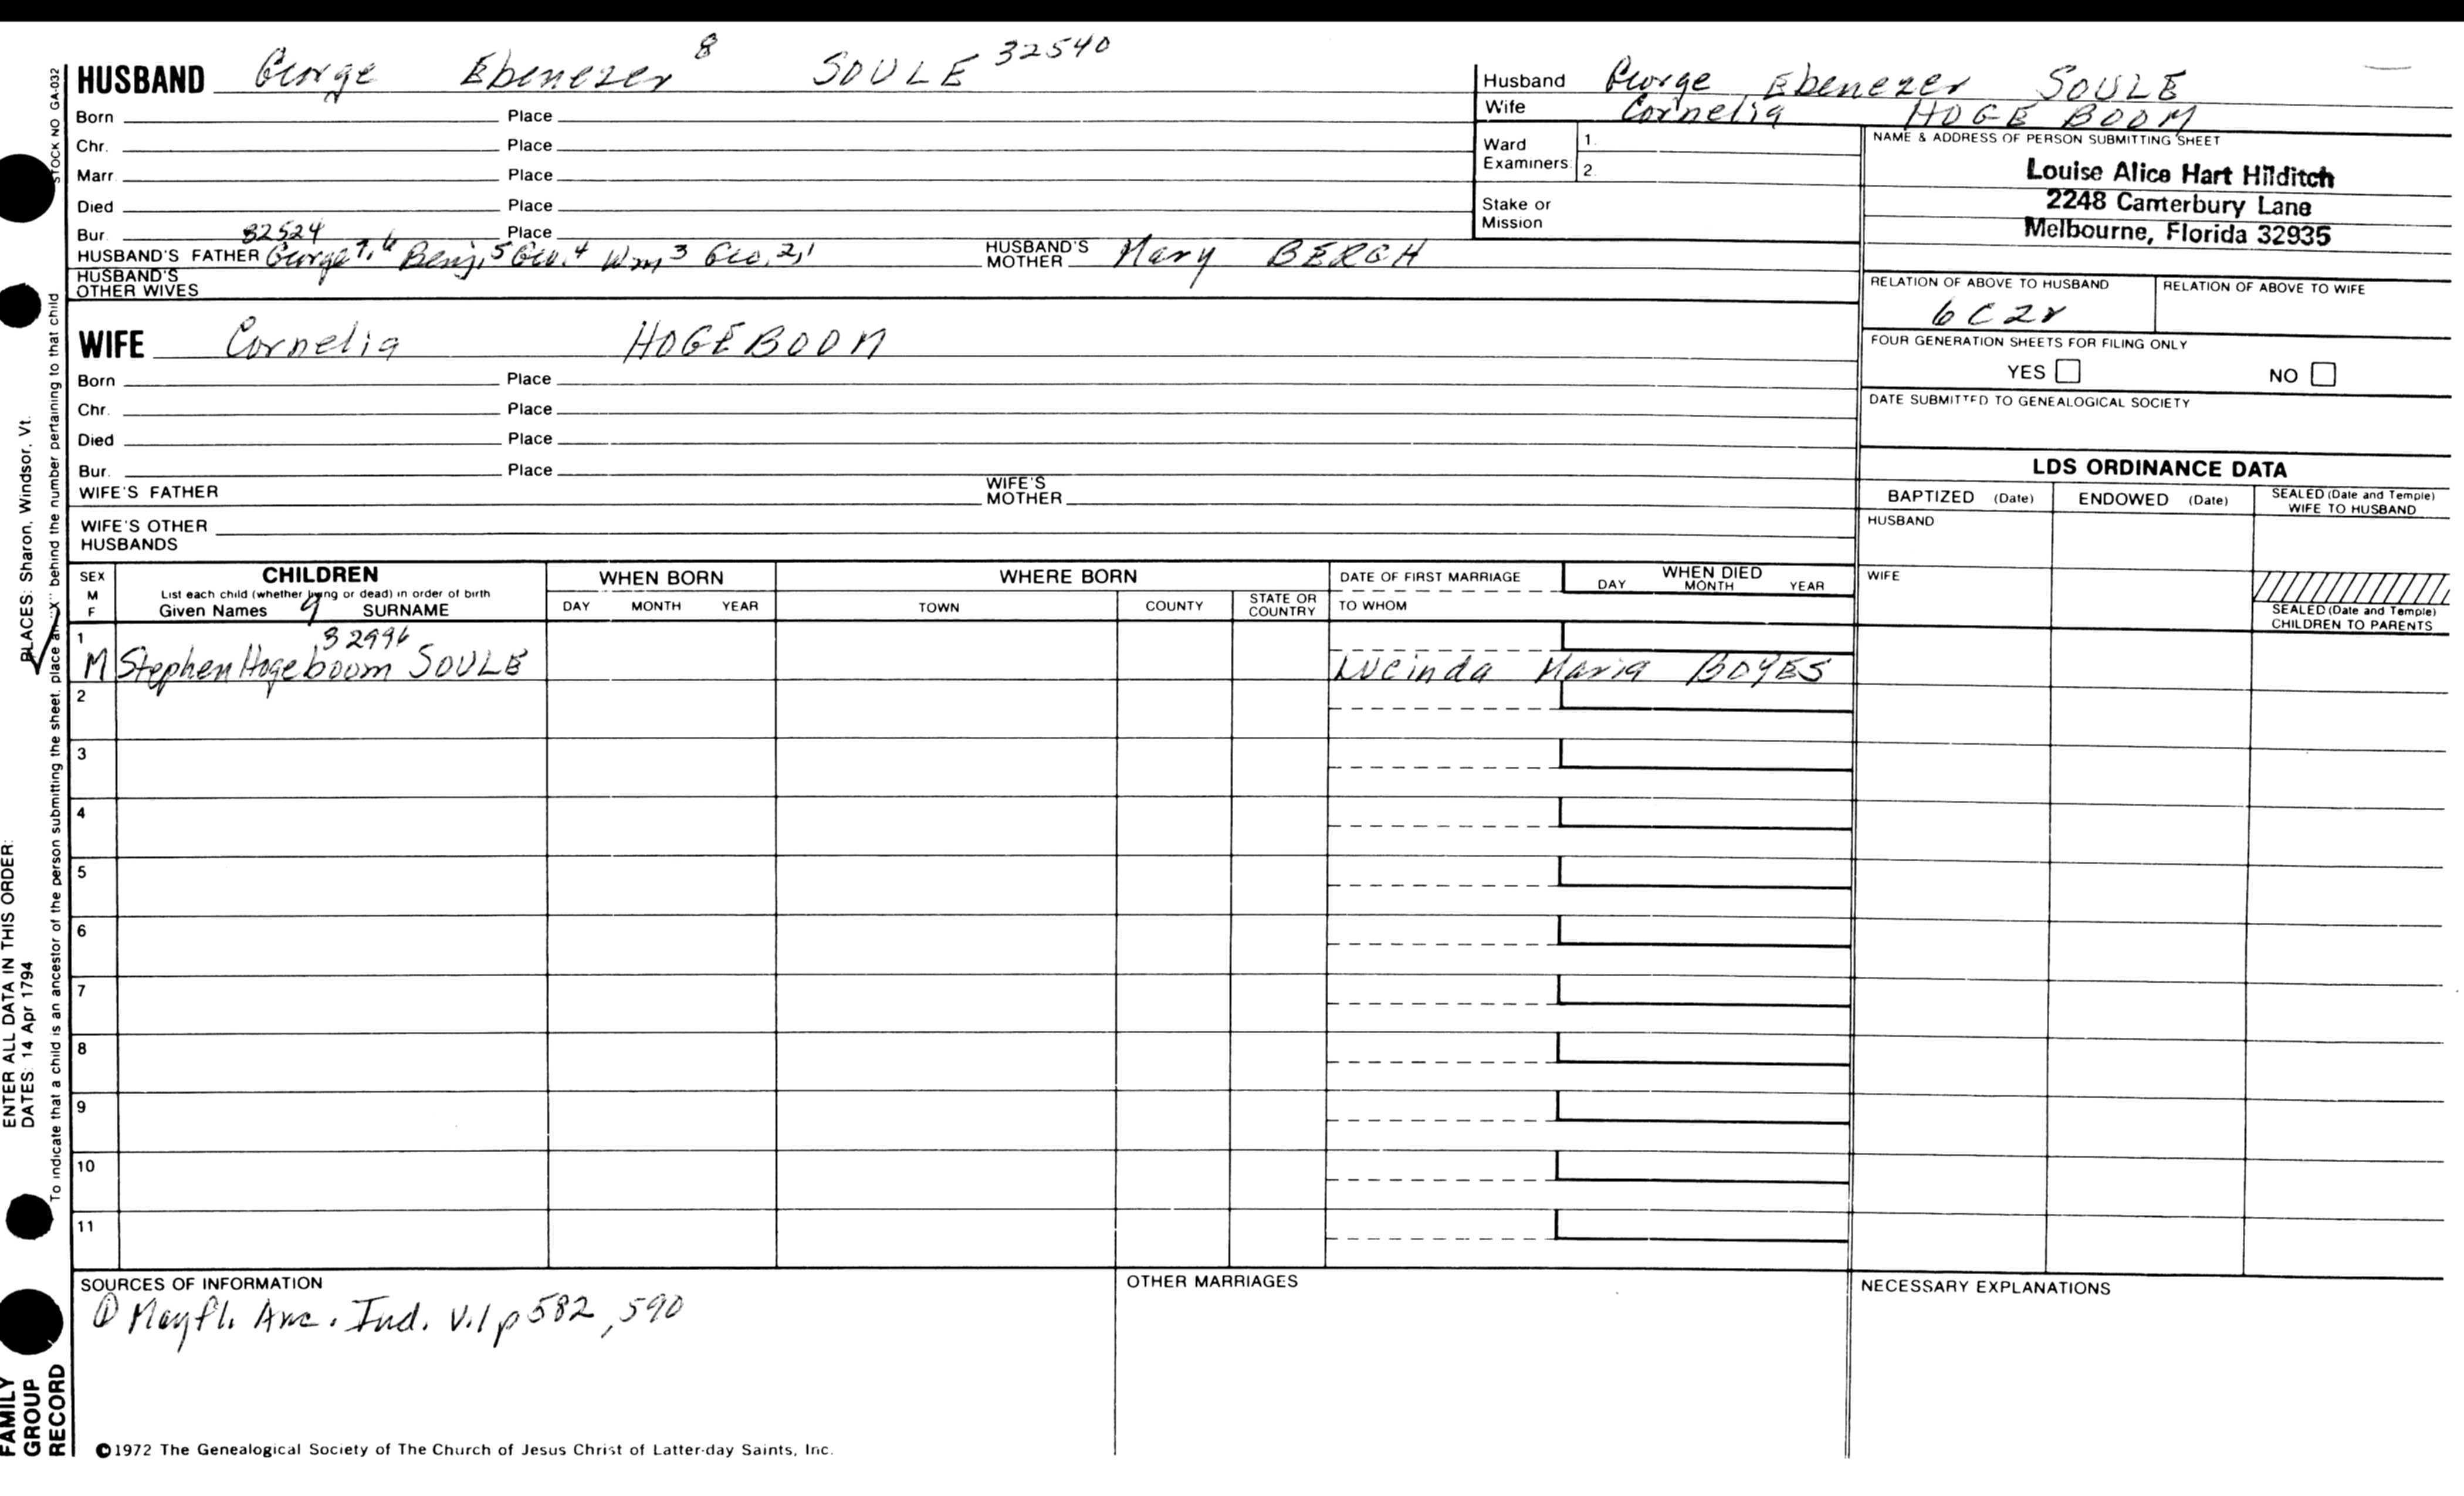 HUSBAND George Ebenezer 8 SOULE 32540
Born Place
Chr. Place
Marr. Place
Died Place
Bur. Place
32524
HUSBAND'S FATHER George 7,6 Benj. 5 Geo. 4 Wm 3 Geo. 2,1 HUSBAND'S MOTHER Mary BERGH
HUSBAND'S OTHER WIVES
WIFE Cornelia HOGEBOOM
Born Place
Chr. Place
Died Place
Bur. Place
WIFE'S FATHER WIFE'S MOTHER
WIFE'S OTHER HUSBANDS
Husband George Ebenezer SOULE
Wife Cornelia HOGE BOOM
Ward Examiners 1. 2.
Stake or Mission
NAME & ADDRESS OF PERSON SUBMITTING SHEET
Louise Alice Hart Hilditch
2248 Canterbury Lane
Melbourne, Florida 32935
RELATION OF ABOVE TO HUSBAND RELATION OF ABOVE TO WIFE
6C2r
FOUR GENERATION SHEETS FOR FILING ONLY
YES NO
DATE SUBMITTED TO GENEALOGICAL SOCIETY
LDS ORDINANCE DATA
BAPTIZED (Date) ENDOWED (Date) SEALED (Date and Temple) WIFE TO HUSBAND
HUSBAND
WIFE
SEALED (Date and Temple) CHILDREN TO PARENTS
SEX M F
CHILDREN
List each child (whether living or dead) in order of birth
Given Names 9 SURNAME
WHEN BORN
DAY MONTH YEAR
WHERE BORN
TOWN COUNTY STATE OR COUNTRY
DATE OF FIRST MARRIAGE
TO WHOM
WHEN DIED
DAY MONTH YEAR
1 32996
M Stephen Hogeboom SOULE Lucinda Maria BOYES
2
3
4
5
6
7
8
9
10
11
SOURCES OF INFORMATION
① Mayfl. Anc. Ind. V.1 p 582, 590
OTHER MARRIAGES
NECESSARY EXPLANATIONS
©1972 The Genealogical Society of The Church of Jesus Christ of Latter-day Saints, Inc.
STOCK NO GA-032
To indicate that a child is an ancestor of the person submitting the sheet, place an "X" behind the number pertaining to that child
PLACES: Sharon, Windsor, Vt.
ENTER ALL DATA IN THIS ORDER:
DATES: 14 Apr 1794
FAMILY
GROUP
RECORD